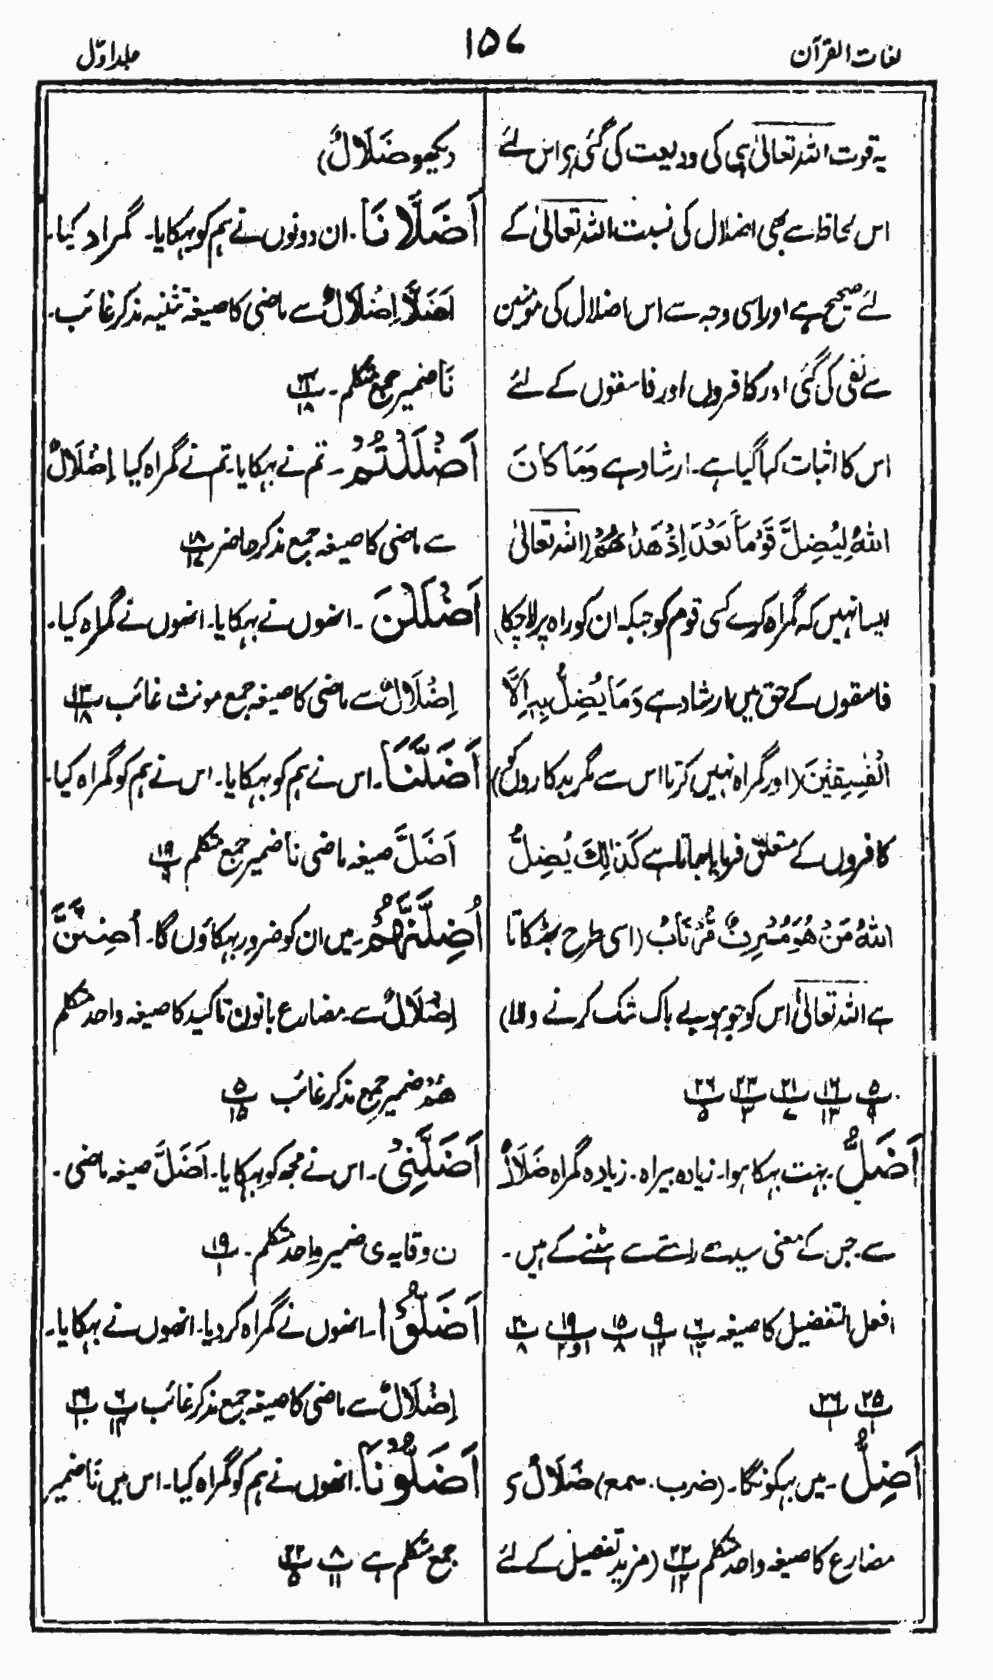 لغات القرآن
۱۵۷
جلد اوّل
یہ قوت اللہ تعالیٰ ہی کی ودیعت کی گئی ہی اس لئے
اس لحاظ سے بھی اضلال کی نسبت اللہ تعالیٰ کے
لئے صحیح ہے اور اسی وجہ سے اس اضلال کی مؤمنین
سے نفی کی گئی اور کافروں اور فاسقوں کے لئے
اس کا اثبات کیا گیا ہے۔ ارشاد ہے وَمَا كَانَ
اللهُ لِيُضِلَّ قَوْمًا بَعْدَ اِذْ هَدٰىهُمْ (اللہ تعالیٰ
ایسا نہیں کہ گمراہ کرے کسی قوم کو جبکہ ان کو راہ پر لا چکا)
فاسقوں کے حق میں ارشاد ہے وَمَا يُضِلُّ بِهٖ اِلَّا
الْفٰسِقِيْنَ (اور گمراہ نہیں کرتا اس سے مگر بدکاروں کو)
کافروں کے متعلق فرمایا جاتا ہے كَذٰلِكَ يُضِلُّ
اللهُ مَنْ هُوَ مُسْرِفٌ مُّرْتَابٌ (اسی طرح بھٹکاتا
ہے اللہ تعالیٰ اس کو جو ہو بے باک شک کرنے والا)
پ۵ ۹ پ۱۶ ۱۳ پ۲۱ ۷ پ۲۳ ۳ پ۲۶ ۵
اَضَلُّ۔ بہت بہکا ہوا۔ زیادہ بیراہ۔ زیادہ گمراہ ضَلَالٌ
سے۔ جس کے معنی سیدھے راستے سے ہٹنے کے ہیں۔
افعل التفضیل کا صیغہ پ۶ ۱۳ پ۹ ۱۲ پ۱۵ ۸ پ۱۹ ۱و۲ پ۲۰ ۸
پ۲۵ ۱ پ۲۶ ۱
اَضِلُّ۔ میں بہکونگا۔ (ضرب۔ سمع) ضَلَالٌ سی
مضارع کا صیغہ واحد متکلم پ۲۲ ۱۲ (مزید تفصیل کے لئے
دیکھو ضَلَالٌ)
اَضَلَّانَا۔ ان دونوں نے ہم کو بہکایا۔ گمراہ کیا۔
اَضَلَّا اِضْلَالٌ سے ماضی کا صیغہ تثنیہ مذکر غائب۔
نَا ضمیر جمع متکلم۔ پ۲۴ ۱۸
اَضْلَلْتُمْ۔ تم نے بہکایا۔ تم نے گمراہ کیا اِضْلَالٌ
سے ماضی کا صیغہ جمع مذکر حاضر پ۱۸ ۱۷
اَضْلَلْنَ۔ انھوں نے بہکایا۔ انھوں نے گمراہ کیا۔
اِضْلَالٌ سے ماضی کا صیغہ جمع مونث غائب پ۱۳ ۱۸
اَضَلَّنَا۔ اس نے ہم کو بہکایا۔ اس نے ہم کو گمراہ کیا۔
اَضَلَّ صیغہ ماضی نا ضمیر جمع متکلم پ۱۹ ۹
اُضِلَّنَّهُمْ۔ میں ان کو ضرور بہکاؤں گا۔ اُضِلَّنَّ
اِضْلَالٌ سے۔ مضارع بانون تاکید کا صیغہ واحد متکلم
هُمْ ضمیر جمع مذکر غائب پ۵ ۱۵
اَضَلَّنِیْ۔ اس نے مجھ کو بہکایا۔ اَضَلَّ صیغہ ماضی۔
ن وقایہ ی ضمیر واحد متکلم۔ پ۱۹ ۱
اَضَلُّوْا۔ انھوں نے گمراہ کر دیا۔ انھوں نے بہکایا۔
اِضْلَالٌ سے ماضی کا صیغہ جمع مذکر غائب پ۶ ۱۴ پ۲۹ ۱۰
اَضَلُّوْنَا۔ انھوں نے ہم کو گمراہ کیا۔ اس میں نَا ضمیر
جمع متکلم ہے پ۸ ۱۱ پ۲۲ ۵